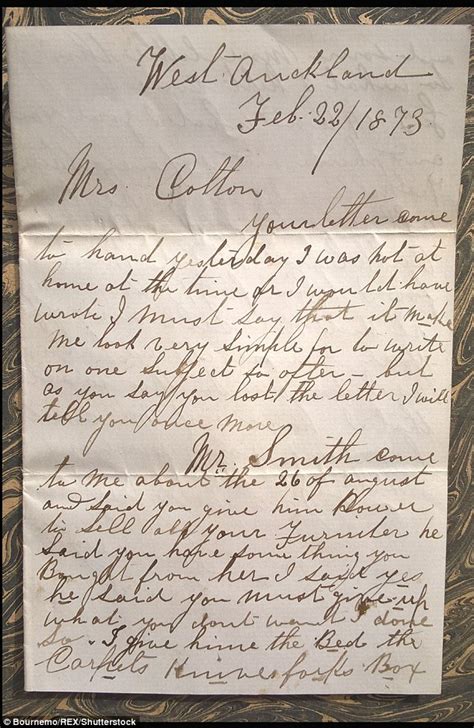 West Auckland
Feb. 22/1873.
Mrs. Cotton
your letter come
to hand yesterday I was not at
home at the time or I would have
wrote I must say that it make
me look very simple for to write
on one subject so often - but
as you say you lost the letter I will
tell you once more
Mr. Smith come
to me about the 26 of august
and said you give him Power
to sell all your Furniter he
said you have some thing you
Bought from her I said yes
he said you must give up
what you dont want I done
so. I give hime the Bed the
Carpets Knives forks Box
© Bournemo/REX/Shutterstock